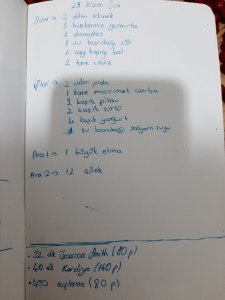 28 Nisan Salı
Sahur → 2 dilim ekmek
1 haşlanmış yumurta
1 domates
1 su bardağı süt
1 çay kaşığı bal
2 tane ceviz
iftar → 2 dilim pide
1 kase mercimek çorba
1 kaşık pilav
2 kaşık türlü
4 kaşık yoğurt
1 su bardağı şalgam suyu
Ara 1 → 1 büyük elma
Ara 2 → 12 çilek
• 32 dk Jessica Smith (80 p)
• 40 dk Kardiyo (160 p)
• 400 zıplama (80 p)